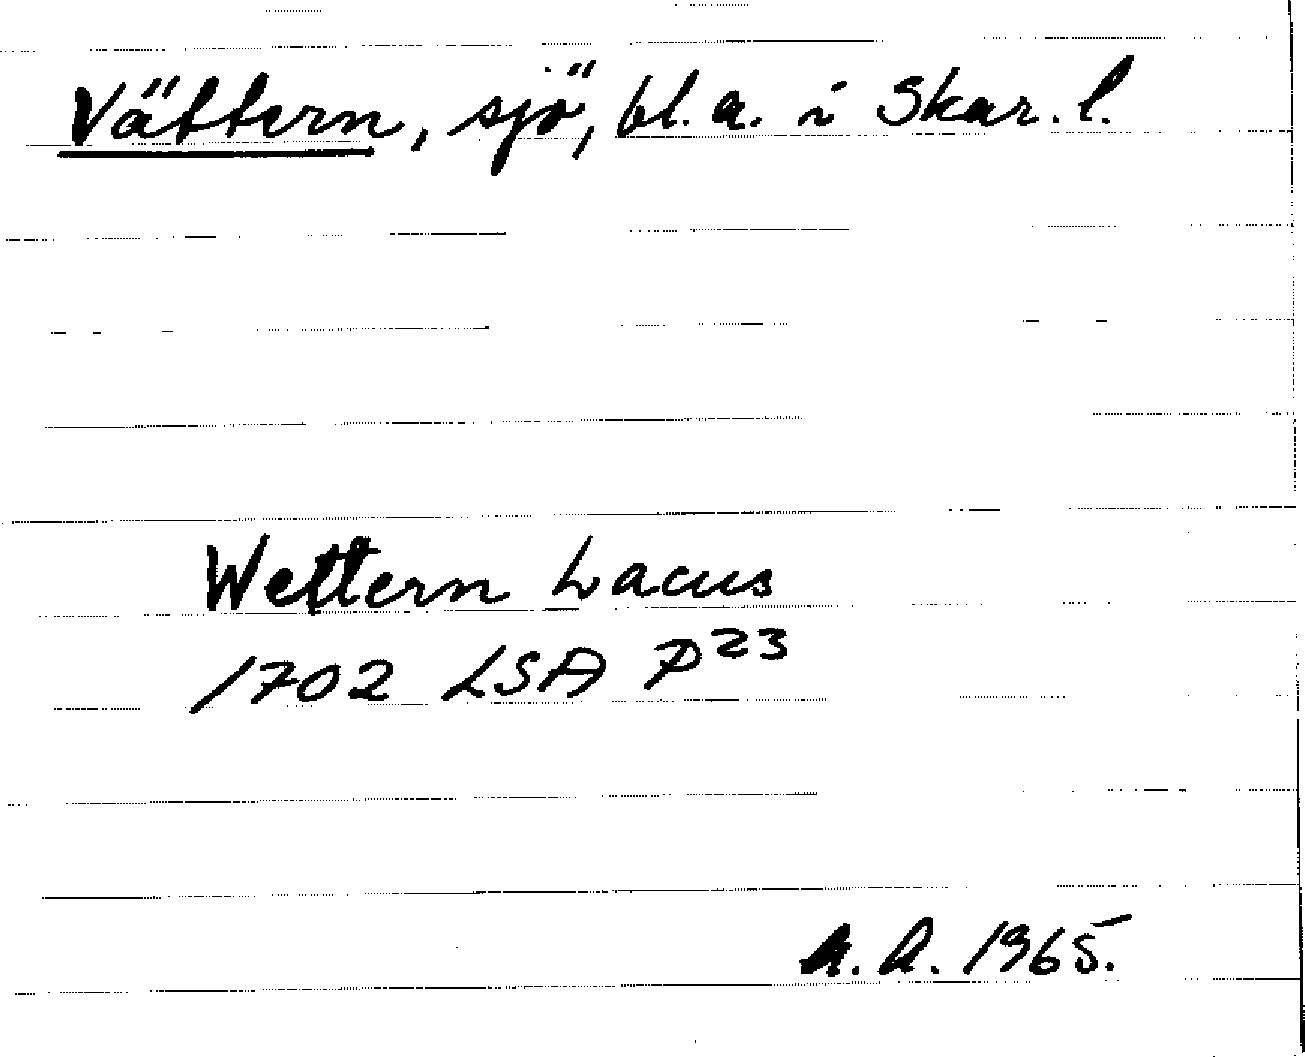 Vättern, sjö, bl.a. i Skar. l.
Wettern Lacus
1702 LSA P 23
A. A. 1965.